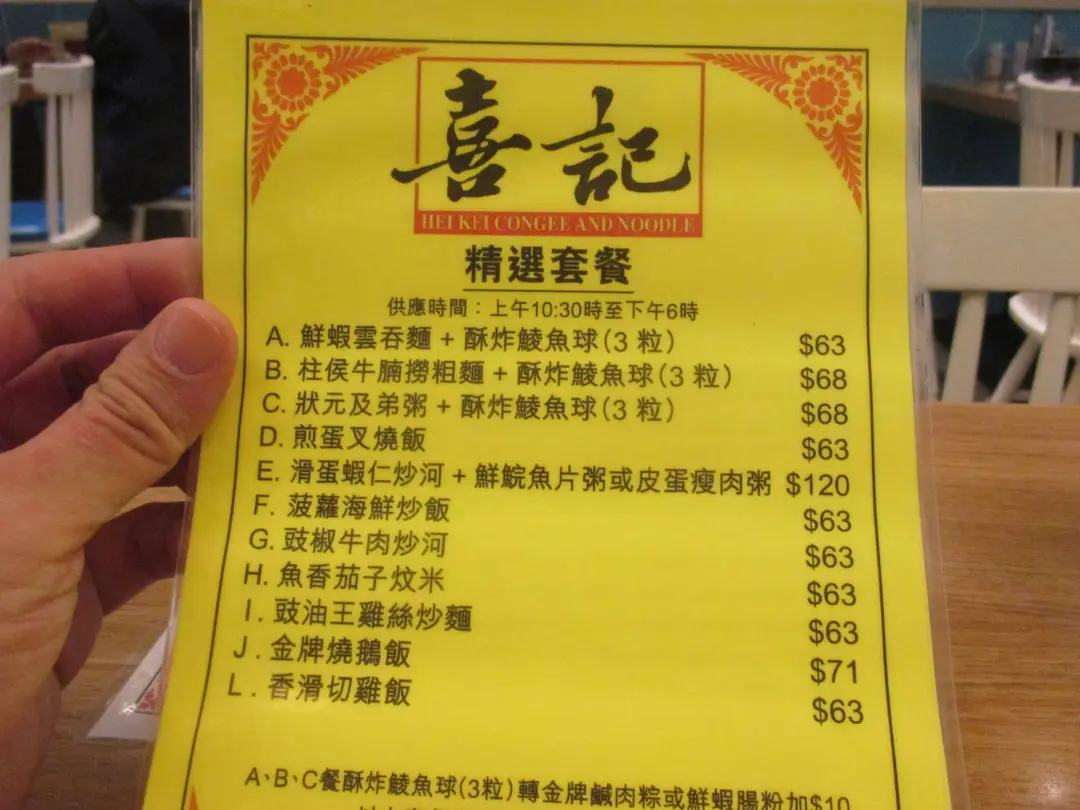 喜記
HEI KEI CONGEE AND NOODLE
精選套餐
供應時間：上午10:30時至下午6時
A. 鮮蝦雲吞麵 + 酥炸鯪魚球(3 粒) $63
B. 柱侯牛腩撈粗麵 + 酥炸鯪魚球(3 粒) $68
C. 狀元及弟粥 + 酥炸鯪魚球(3 粒) $68
D. 煎蛋叉燒飯 $63
E. 滑蛋蝦仁炒河 + 鮮鯇魚片粥或皮蛋瘦肉粥 $120
F. 菠蘿海鮮炒飯 $63
G. 豉椒牛肉炒河 $63
H. 魚香茄子炆米 $63
I. 豉油王雞絲炒麵 $63
J. 金牌燒鵝飯 $71
L. 香滑切雞飯 $63
A、B、C餐酥炸鯪魚球(3粒)轉金牌鹹肉粽或鮮蝦腸粉加$10